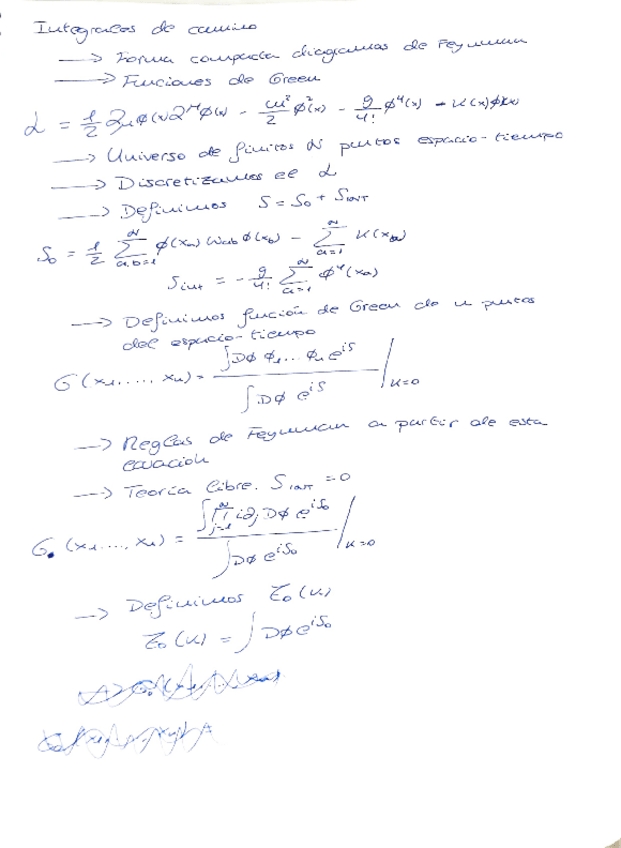 Integrales de camino
→ Forma compacta diagramas de Feynman
→ Funciones de Green
L = 1/2 ∂μ φ(x) ∂^μ φ(x) - m²/2 φ²(x) - g/4! φ⁴(x) - K(x)φ(x)
→ Universo de finitos N puntos espacio-tiempo
→ Discretizamos el L
→ Definimos S = S₀ + S_INT
S₀ = 1/2 Σ_{a,b=1}^{N} φ(xa) Wab φ(xb) - Σ_{a=1}^{N} K(xa)
S_int = - g/4! Σ_{a=1}^{N} φ⁴(xa)
→ Definimos función de Green de n puntos
del espacio-tiempo
G(x₁, ..., xn) = ∫Dφ φ₁...φn e^{iS} / ∫Dφ e^{iS} |_{K=0}
→ Reglas de Feynman a partir de esta
ecuación
→ Teoría libre. S_INT = 0
G₀(x₁..., xn) = ∫ ∏_{j=1}^{n} i∂j Dφ e^{iS₀} / ∫Dφ e^{iS₀} |_{K=0}
→ Definimos Z₀(K)
Z₀(K) = ∫Dφ e^{iS₀}